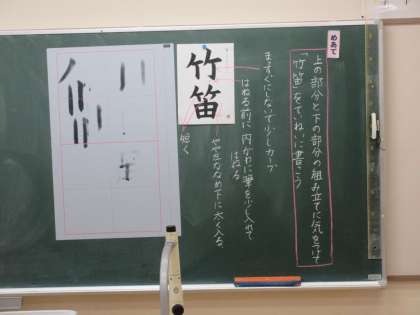 めあて
上の部分と下の部分の組み立てに気をつけて
「竹笛」をていねいに書こう
まっすぐにしないで少しカーブ
はねる前に内がわに筆を少し入れて
はねる
ややななめ下に太く入る。
短く
竹笛